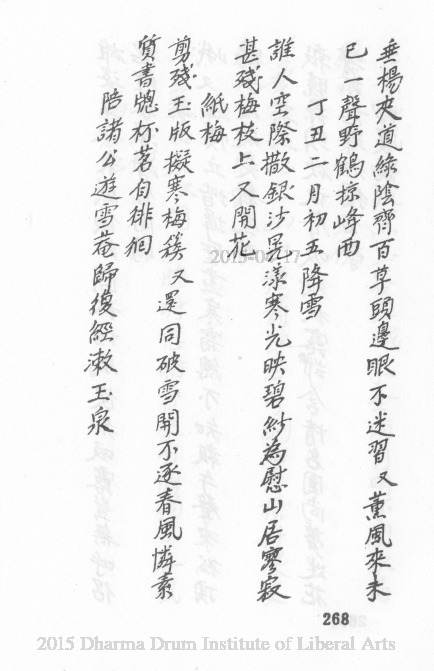 垂楊夾道綠陰齊百草頭邊眼不迷習又薰風來未
已一聲野鶴掠峰西
丁丑二月初五降雪
誰人空際撒銀沙晃漾寒光映碧紗為慰山居寥寂
甚殘梅枝上又開花
紙梅
剪殘玉版擬寒梅簇又還同破雪開不逐春風憐素
質書牕杯茗自徘徊
陪諸公遊雪菴歸復經漱玉泉
268
2015 Dharma Drum Institute of Liberal Arts